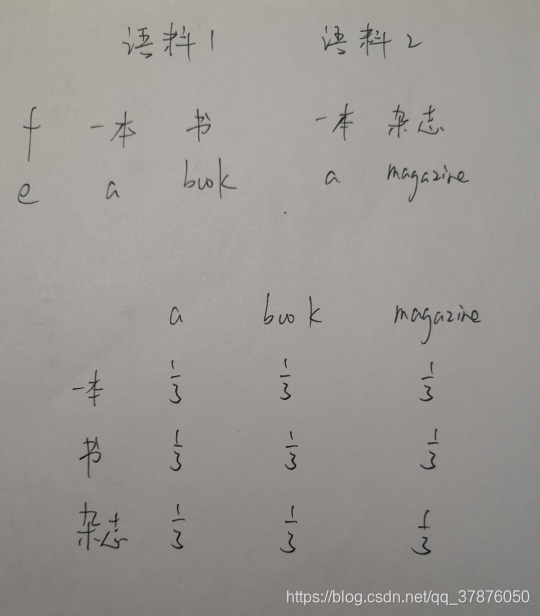 语料1 语料2
f 一本 书 一本 杂志
e a book a magazine
a book magazine
一本 1/3 1/3 1/3
书 1/3 1/3 1/3
杂志 1/3 1/3 1/3
https://blog.csdn.net/qq_37876050